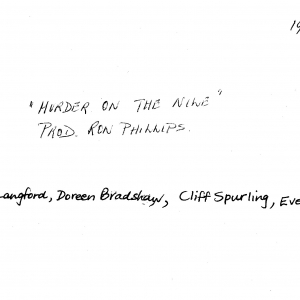 19
"MURDER ON THE NILE"
PROD. RON PHILLIPS.
angford, Doreen Bradshaw, Cliff Spurling, Eve